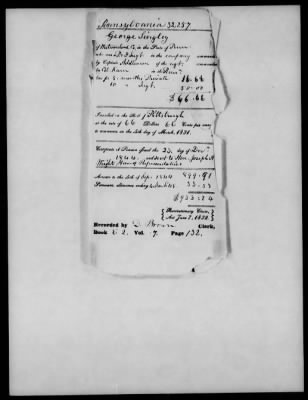 Pennsylvania 32,257
George Singley
of Westmoreland Co. in the State of Penn
who was a Pr & Sergt in the company commanded
by Captain of the regt. commanded
by Col. in the Penn
line for 6 months Private 16.66
10 " Sergt. 50.00
$66.66
Inscribed on the Roll of Pittsburgh
at the rate of 66 Dollars 66 Cents per annum,
to commence on the 4th day of March, 1831.
Certificate of Pension issued the 23 day of Decr
1844
House of Representatives
Arrears to the 4th of Sept. 1844 899.91
Semi-anl. allowance ending 4 33.33
$933.24
Revolutionary Claim,
Act June 7, 1832.
Recorded by D. Brown Clerk,
Book E 2. Vol. 7. Page 132.